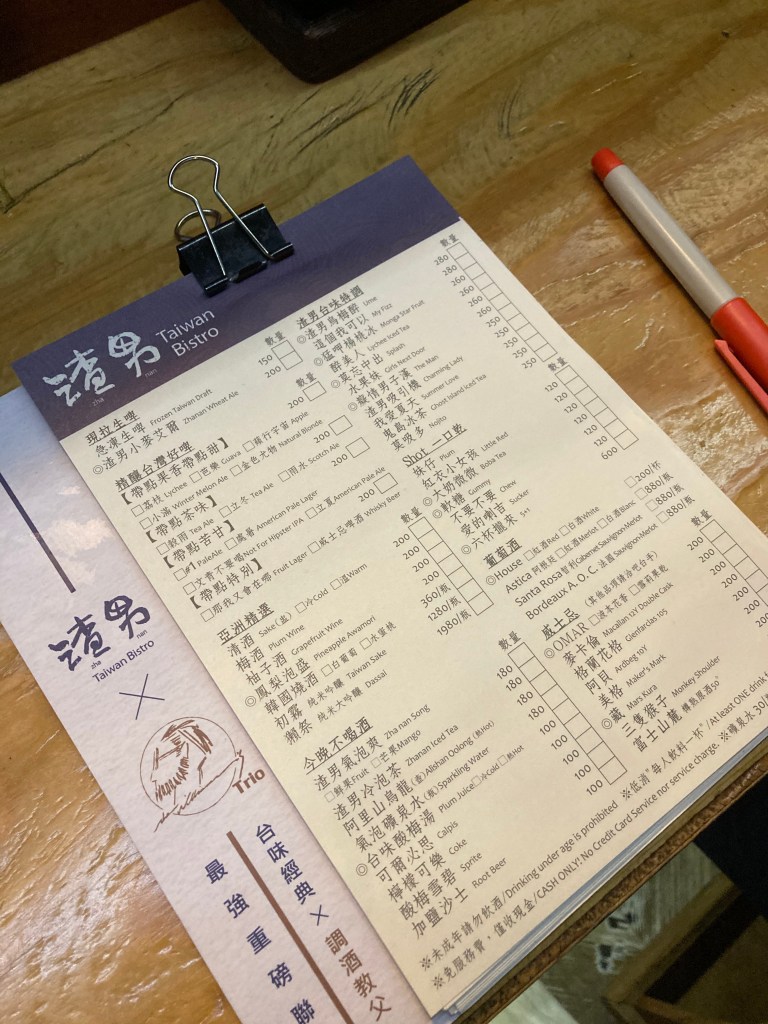 渣男 Taiwan Bistro
zha nan
數量
現拉生啤
急凍生啤 Frozen Taiwan Draft 150
◎渣男小麥艾爾 Zhanan Wheat Ale 200
精釀台灣好啤 數量
【帶點果香帶點甜】 200
□荔枝 Lychee □芭樂 Guava □飛行宇宙 Apple
□小滿 Winter Melon Ale □金色尤物 Natural Blonde
【帶點茶味】 200
□穀雨 Tea Ale □立冬 Tea Ale □雨水 Scotch Ale
【帶點苦甘】 200
□#1 PaleAle □處暑 American Pale Lager
□文青不要喝Not For Hipster IPA □立夏American Pale Ale
【帶點特別】 200
□那我又會在哪 Fruit Lager □威士忌啤酒 Whisky Beer
亞洲精選 數量
清酒 Sake(盅) □冷Cold □溫Warm 200
梅酒 Plum Wine 200
柚子酒 Grapefruit Wine 200
◎鳳梨泡盛 Pineapple Awamori 200
韓國燒酒 □白葡萄 □水蜜桃 360/瓶
初霧 純米吟釀 Taiwan Sake 1280/瓶
獺祭 純米大吟釀 Dassai 1980/瓶
今晚不喝酒 數量
渣男氣泡爽 Zha nan Song 180
□鮮果Fruit □芒果Mango
渣男冷泡茶 Zhanan Iced Tea 180
阿里山烏龍(壺)Alishan Oolong (熱Hot) 180
氣泡礦泉水(瓶)Sparkling Water 100
◎台味酸梅湯 Plum Juice□冷Cold□熱Hot 100
可爾必思 Calpis 100
檸檬可樂 Coke 100
酸梅雪碧 Sprite 100
加鹽沙士 Root Beer 100
渣男台味特調 數量
◎渣男烏梅醉 Ume 280
這個我可以 My Fizz 280
◎猛呷楊桃冰 Monga Star Fruit 260
醉美人 Lychee Iced Tea 260
◎莫忘中出 Splash 260
水果妹 Girls Next Door 260
◎癡情男子漢 The Man 250
渣男吸引機 Charming Lady 250
我愛夏天 Summer Love 250
鬼島冰茶 Ghost Island Iced Tea
莫吸多 Nojito 250
Shot 一口乾 數量
妹仔 Plum 120
紅衣小女孩 Little Red 120
◎大奶微微 Boba Tea 120
◎軟糖 Gummy 120
不要不要 Chew 120
愛的喇吉 Sucker 120
◎六杯撞來 5+1 600
葡萄酒
◎House □紅酒Red □白酒White □200/杯
Astica 阿根廷 □紅酒Merlot □白酒Blanc □880/瓶
Santa Rosa智利Cabernet Sauvignon Merlot □880/瓶
Bordeaux A. O. C. 法國 Sauvignon Merlot □880/瓶
威士忌 (其他品項請洽吧台手) 數量
◎OMAR □波本花香 □雪莉果乾 200
麥卡倫 Macallan 12Y Double Cask
格蘭花格 Glenfarclas 105
阿貝 Ardbeg 10Y
美格 Maker's Mark
◎藏 Mars Kura
三隻猴子 Monkey Shoulder
富士山麓 樽熟原酒50°
※未成年請勿飲酒/Drinking under age is prohibited ※低消"每人飲料一杯"/At least ONE drink
※免服務費，僅收現金/CASH ONLY! No Credit Card Service nor service charge. ※礦泉水 30/
渣男
zha nan
Taiwan Bistro
×
Trio
台味經典×調酒教父
最強重磅聯